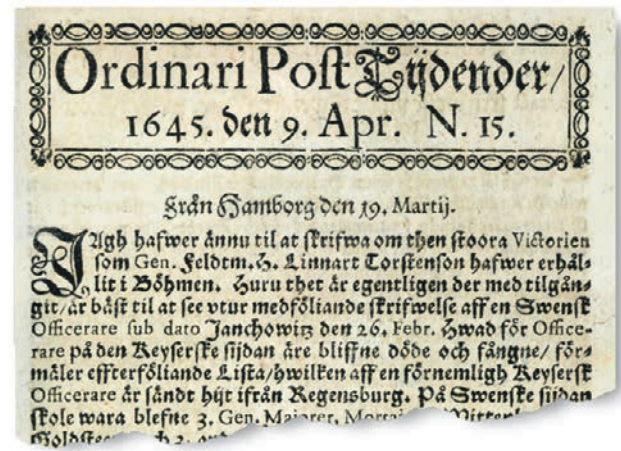 Ordinari Post Tijdender/
1645. den 9. Apr. N. 15.
Från Hamborg den 19. Martij.
JAgh hafwer ännu til at skrifwa om then stoora Victorien
som Gen. Feldtm. H. Linnart Torstenson hafwer erhål-
lit i Böhmen. Huru thet är egentligen der med tilgån-
git/är bäst til at see vtur medföliande skrifwelse aff en Swensk
Officerare sub dato Janchowitz den 26. Febr. Hwad för Office-
rare på den Keyserske sijdan äre bliffne döde och fångne/ för-
mäler effterföliande Lista/hwilken aff en förnemligh Keysersk
Officerare är sändt hijt ifrån Regensburg. På Swenske sijdan
skole wara blefne 3. Gen. Majorer, Mortai